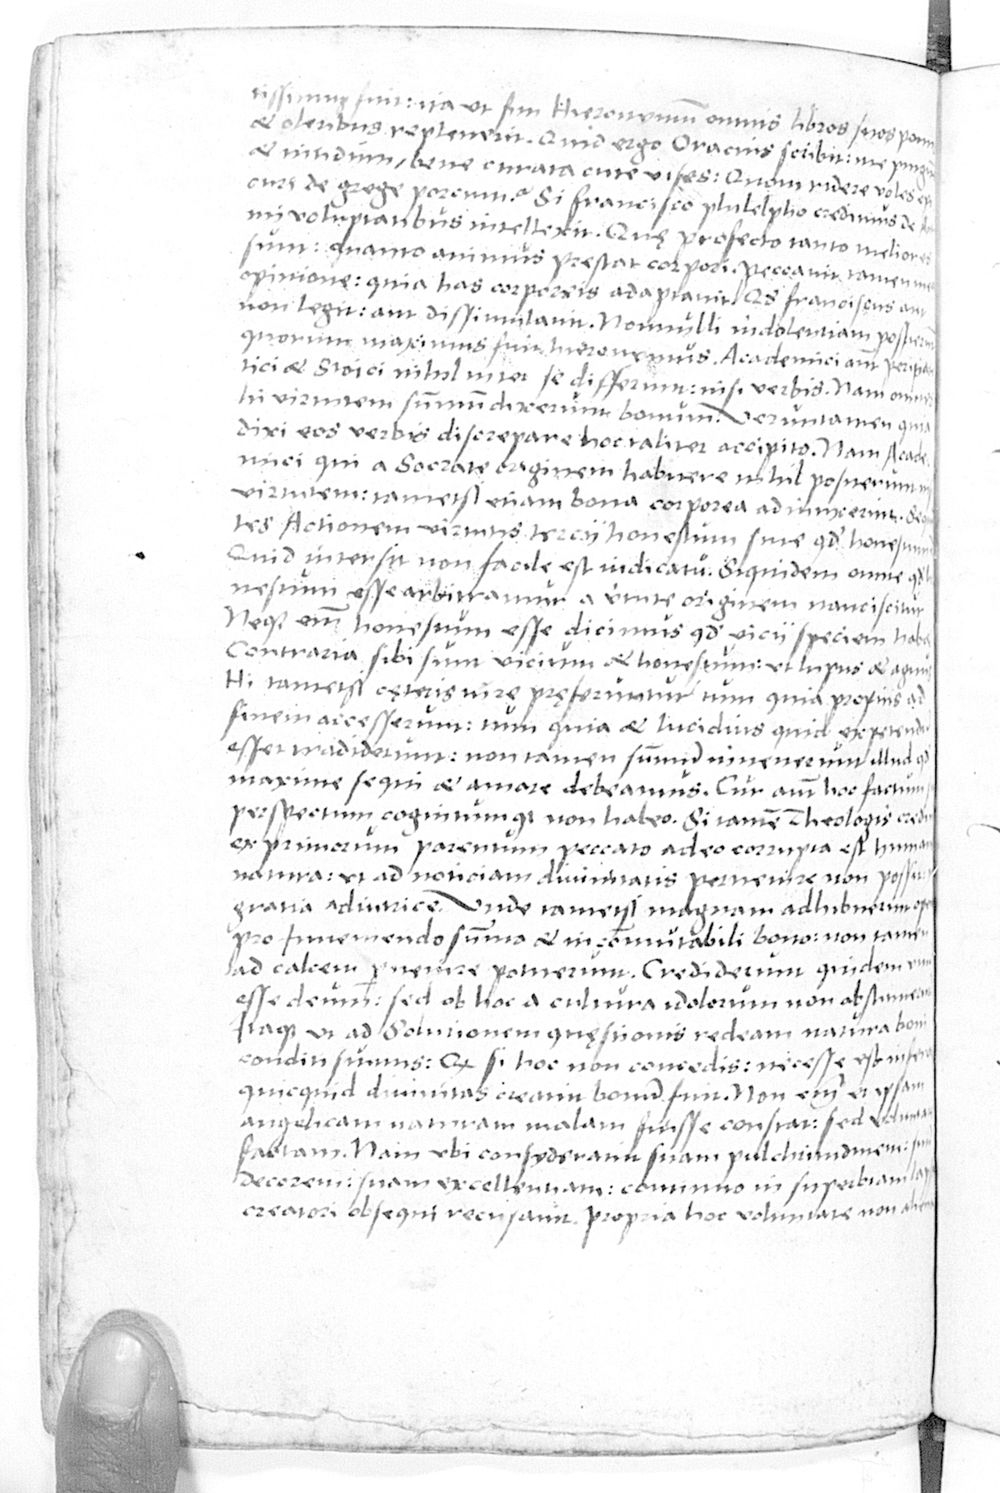 tissimus fuit: ita ut scđm Hieronymum omnis libros suos pomis
& oleribus repleuerit. Quid ergo Oracius scribit: me pinguē
& nitidum, bene curata cute vises: Quom ridere voles epi
curi de grege porcum? Si Francisco philelpho credimus de
mi voluptatibus intellexit. Quę profecto tanto meliores
sunt: quanto animus prestat corpori. peccauit tamen mea
opinione: quia has corporeis adaptauit. Qđ franciscus aut
non legit: aut dissimulauit. Nonnulli indolentiam posuerunt
quorum maximus fuit hieronymus. Academici aūt peripate
tici & Stoici nihil inter se differunt: nisi verbis. Nam omnes
hi virtutem sūmū dixerunt bonum. Veruntamen quia
dixi eos verbis discrepare hoc taliter accipito. Nam Acade
mici qui a Socrate originem habuere nihil posuerunt nisi
virtutem: tametsi etiam bona corporea adiunxerint.
tes Actionem virtutis tercij honestum siue qđ honestum
Quid intersit non facile est iudicatu. Siquidem omne qđ ho
nestum esse arbitramur a v̄tute originem nanciscitur
Neqȝ enī honestum esse dicimus qđ vicij speciem habet
Contraria sibi sunt vicium & honestum: ut lupus & agnus
Hi tametsi cęteris iure pręferuntur tum quia propius ad
finem accesserunt: tum quia & lucidius quid expetendū
esset tradiderunt: non tamen sūmū inuenerunt illud qđ
maxime sequi & amare debeamus. Cur aūt hoc factum
perspectum cognitumqȝ non habeo. Si tamē Theologis credi
ex primorum parentum peccato adeo corrupta est humana
natura: ut ad noticiam diuinitatis peruenire non possit
gratia adiutrice. Vnde tametsi magnam adhibuerint operā
pro inueniendo sūmo & incōmutabili bono: non tamen
ad calcem ꝑuenire potuerunt. Crediderunt quidem vnum
esse deum: sed ob hoc a cultura idolorum non abstinuerunt
Itaqȝ ut ad Solutionem quęstionis redeam natura boni
conditi sumus: Qđ si hoc non concedis: necesse est
quicquid diuinitas creauit bonū fuit. Non enī et ipsam
angelicam naturam malam fuisse constat: sed voluntate
factam. Nam vbi consyderauit suam pulchritudinem: suum
decorem: suam excellentiam: continuo in superbiam lapsa
creatori obsequi recusauit. propria hoc voluntate non aliena